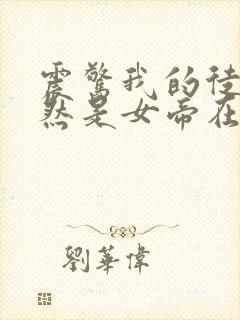 震驚我的徒
然是女帝在
劉華偉